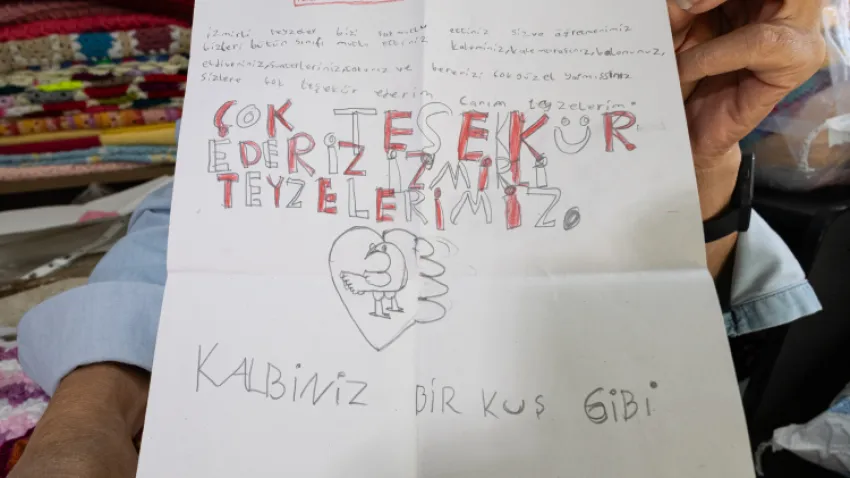 İzmirli teyzeler bizi çok mutlu ettiniz siz ve öğretmenimiz
bizleri bütün sınıfı mutlu ettiniz kaleminiz, balonunuz,
eldiveniniz, ve bereniz çok güzel
sizlere çok teşekür ederim
canım teyzelerim.
ÇOK TEŞEKKÜR
EDERİZ İZMİRLİ
TEYZELERİMİZ.
KALBİNİZ BİR KUŞ GİBİ